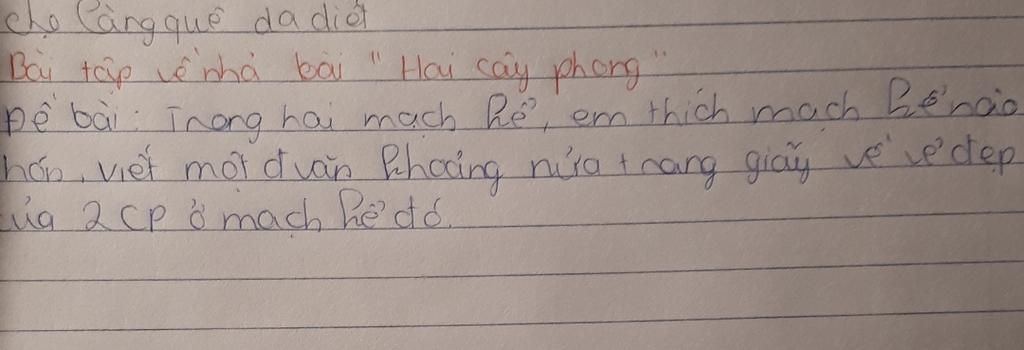 cho làng quê da diết
Bài tập về nhà bài " Hai cây phong "
Đề bài : Trong hai mạch kể, em thích mạch kể nào
hơn, viết một đ văn khoảng nửa trang giấy về vẻ đẹp
của 2 CP ở mạch kể đó.